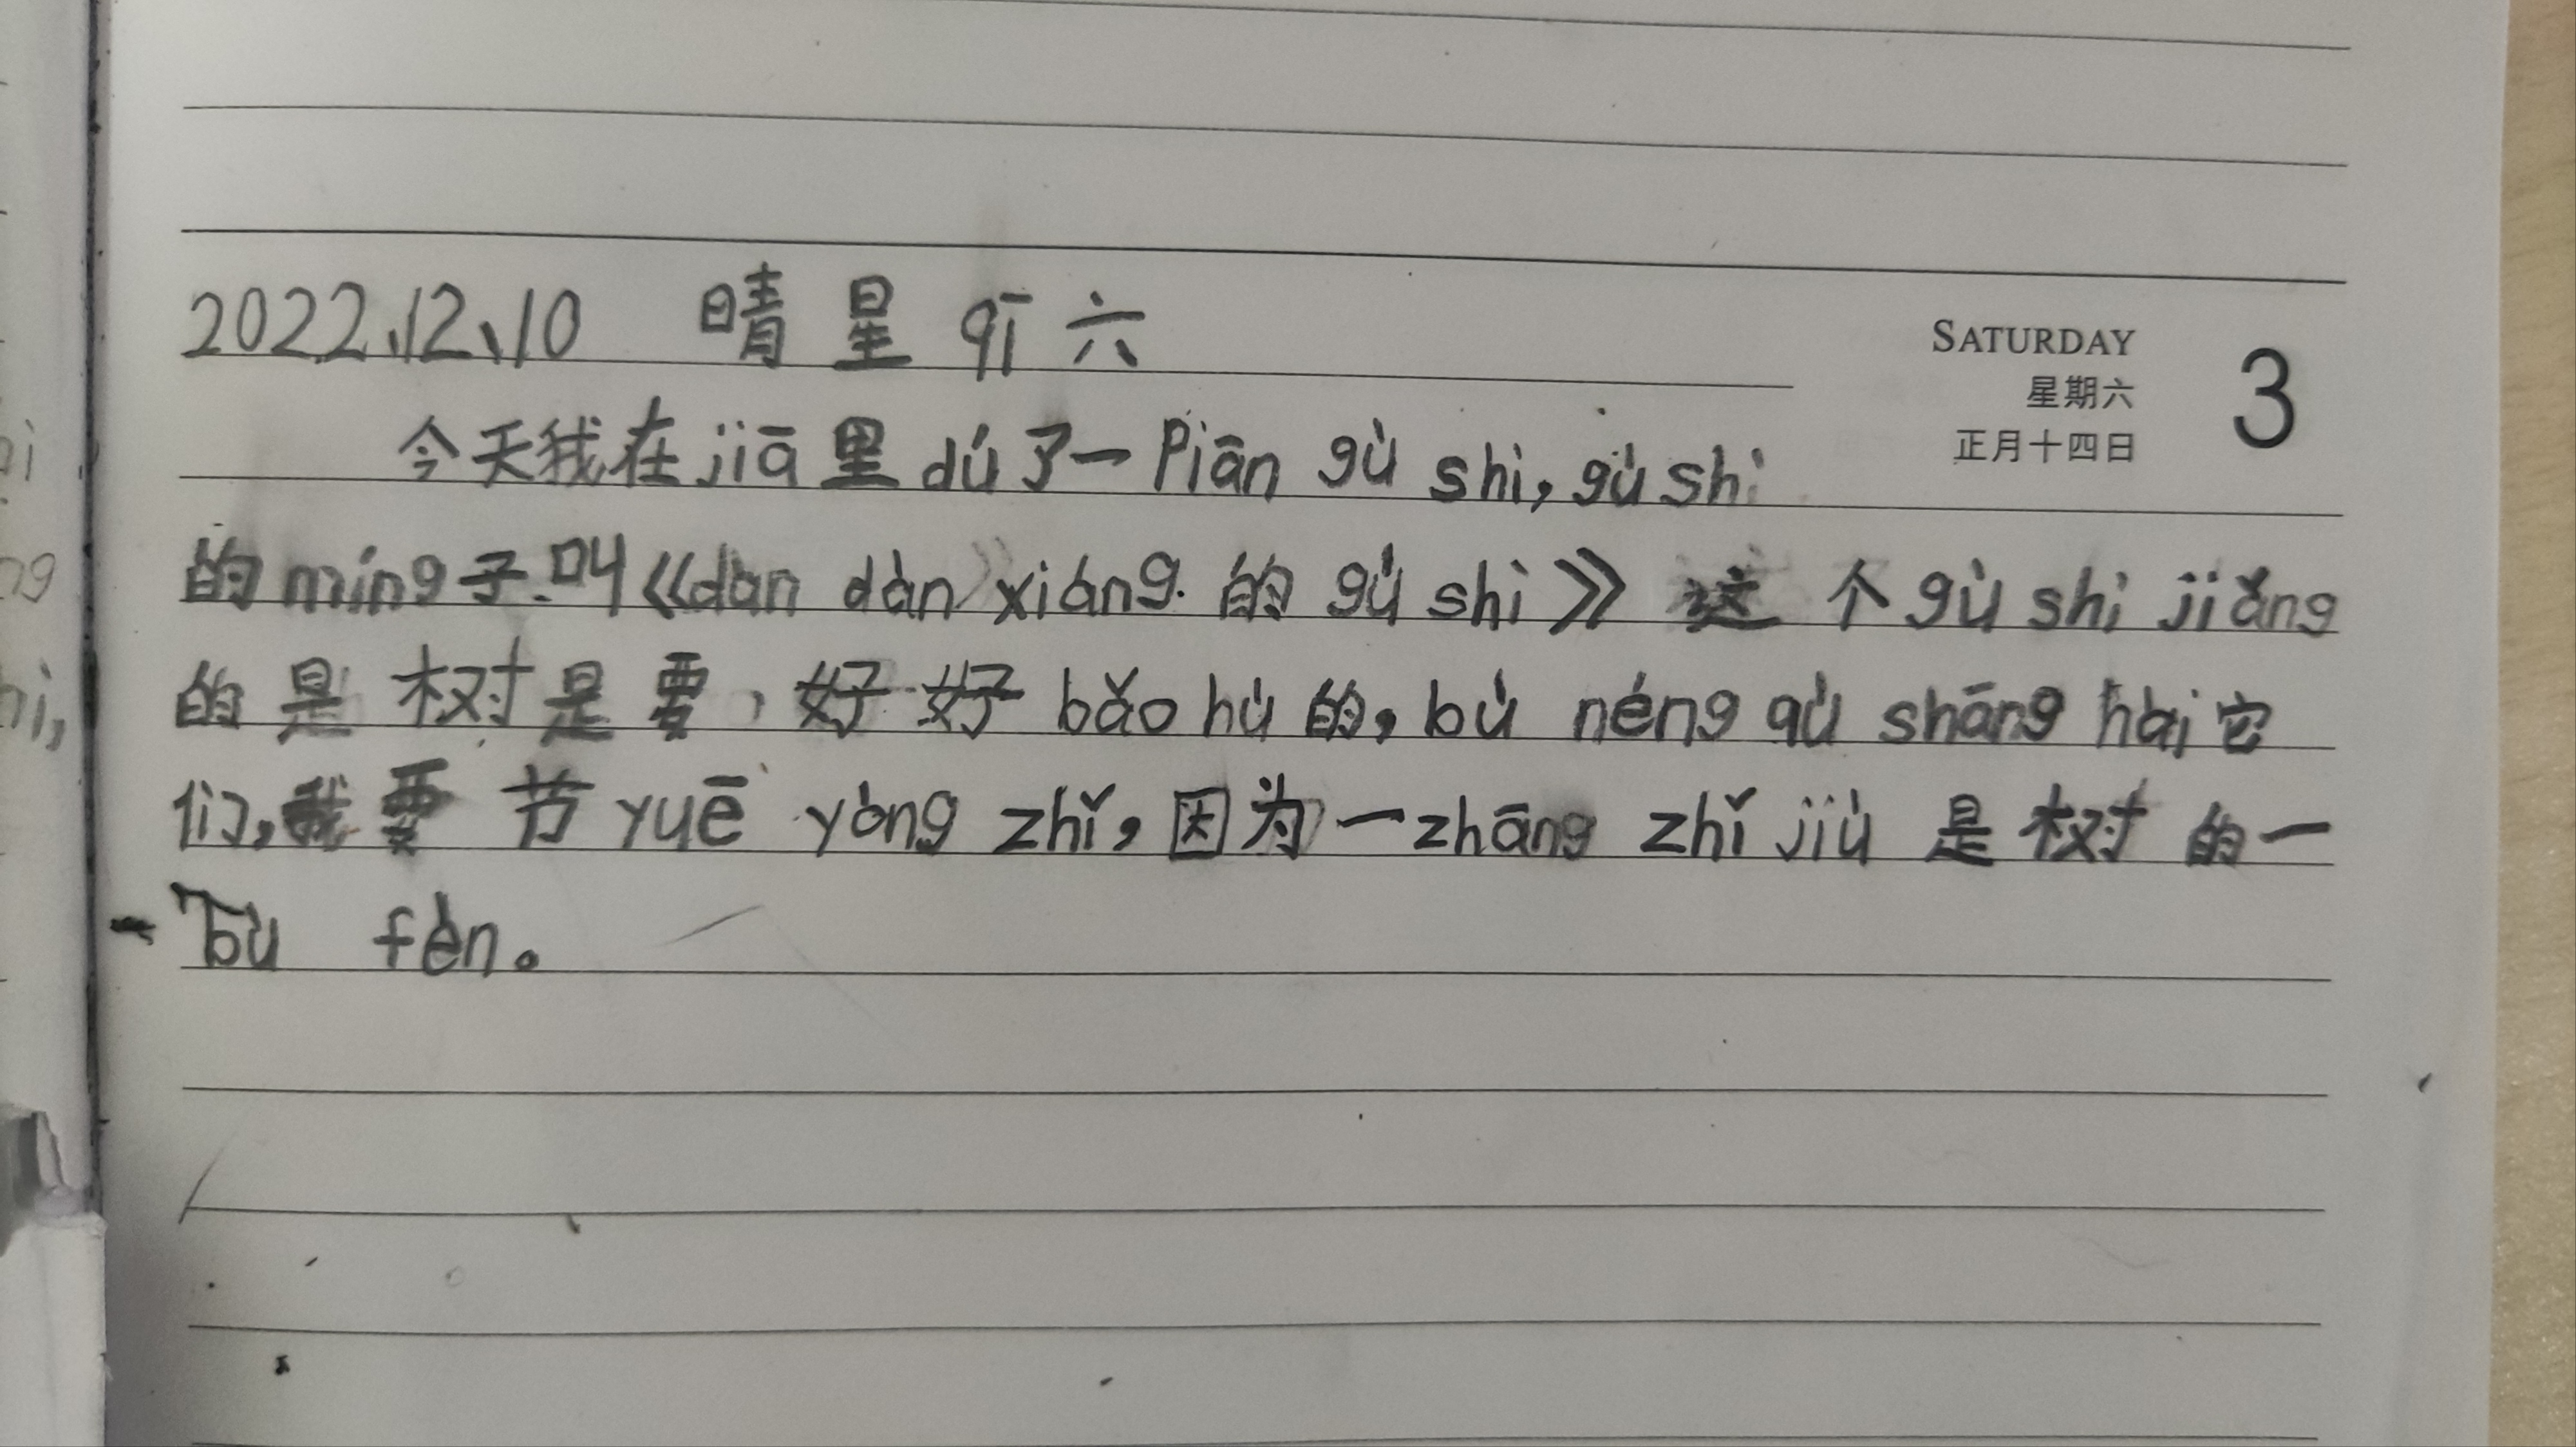 2022、12、10 晴 星 qī 六
SATURDAY
星期六
正月十四日
3
今天我在jiā里dú了一Piān gù shi，gù shi
的míng子叫《dàn dàn xiāng 的 gù shi》这个gù shi jiǎng
的是树是要，好好bǎo hù的，bù néng qù shāng hài它
们，我要节yuē yòng zhǐ，因为一zhāng zhǐ jiù是树的一
bù fèn。